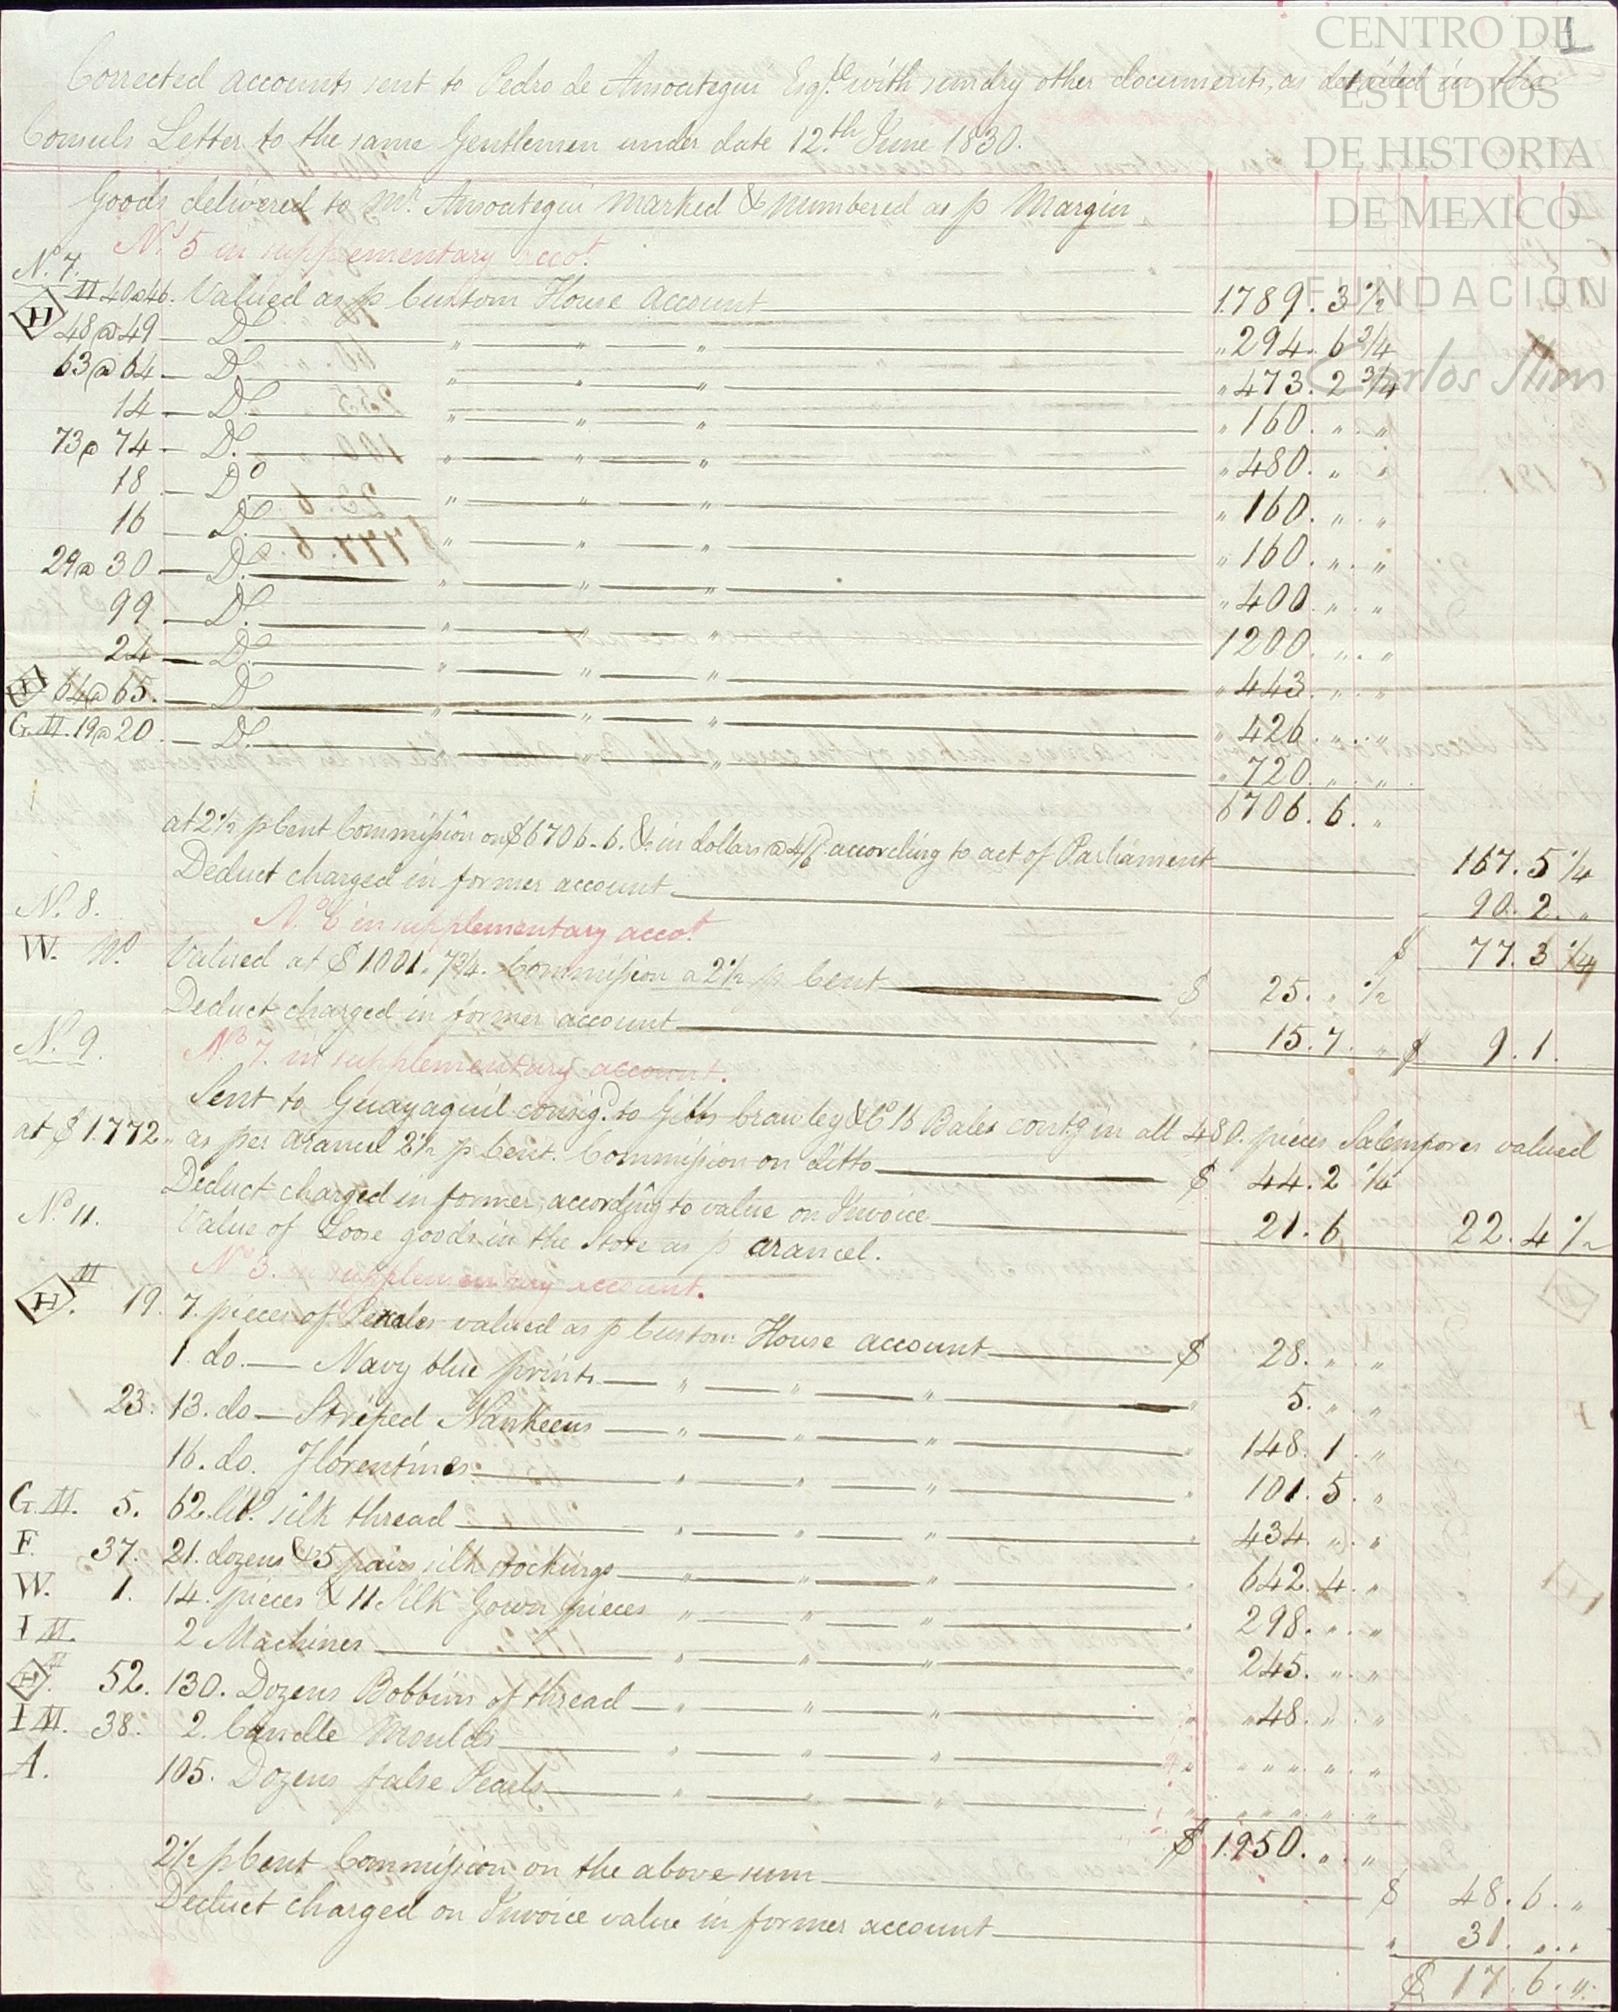 CENTRO DE
ESTUDIOS
DE HISTORIA
DE MEXICO
FUNDACION
Carlos Slim
1
Corrected accounts sent to Pedro de Amoategui Esqre with sundry other documents, as detailed in the
Consuls Letter to the same Gentlemen under date 12.th June 1830.
Goods delivered to Mr. Amoategui Marked & Numbered as p Margin
No. 5 in supplementary acct.
No. 7.
H III 40@46. Valued as p Custom House Account 1789. 3 1/2
48@49 — Do. " " " " 294. 6 3/4
63@64 — Do. " " " " 473. 2 3/4
14 — Do. " " " " 160. " . "
73@74 — Do. " " " " 480. " "
18 — Do " " " " 160. " . "
16 — Do. " " " " 160. " . "
29@30 — Do. " " " " 400. " . "
99 — Do. " " " 1200. " . "
24 — Do. " " " " 443. " . "
H 64@65. — Do " " " " 426. " . "
G.III. 19@20 — Do. " " " 720. " . "
6706. 6. "
at 2 1/2 p Cent Commission on $6706.. 6. & in dollars @ 4/6 according to act of Parliament 167. 5 1/4
Deduct charged in former account 90. 2. "
$ 77. 3 1/4
No. 8.
No. 6 in supplementary acct
W. No. Valued at $1.001. 7 3/4. Commission a 2 1/2 p Cent $ 25. " 1/2
Deduct charged in former account " 15. 7. " $ 9. 1.
No. 9.
No. 7. in supplementary account.
Sent to Guayaquil consigd. to Gibbs Crawley & Co 16 Bales contg in all 480. pieces Salempores valued
at $1.772 " as per arancel 2 1/2 p Cent. Commission on ditto $ 44. 2 1/4
Deduct charged in former, according to value on Invoice 21. 6 22. 4 1/2
No 11. Value of Loose goods in the Store as p arancel.
No 3. in supplementary account.
H III. 19. 7. pieces of Percales valued as p Custom House account $ 28. " . "
1. do. — Navy blue prints — " — " — " 5. " . "
23. 13. do — Striped Nankeens — " — " — " " 148. 1. "
16. do. Florentines " " " " 101. 5. "
G. III. 5. 62. lbs. silk thread " " " " 434. " . "
F. 37. 21. dozens & 5 pairs silk stockings " " " " 642. 4. "
W. 1. 14. pieces & 11 Silk Gown pieces " " " " 298. " . "
I III. 2 Machines " " " " 245. " . "
H III. 52. 130. Dozens Bobbins of thread — " " " " " 48. " . "
I III. 38. 2. Candle Moulds " " " " " " " " "
A. 105. Dozens false Pearls " " " " " " " " "
$ 1950. " . "
2 1/2 p Cent Commission on the above sum $ 48. 6. "
Deduct charged on Invoice value in former account " 31. " . "
$ 17. 6. "